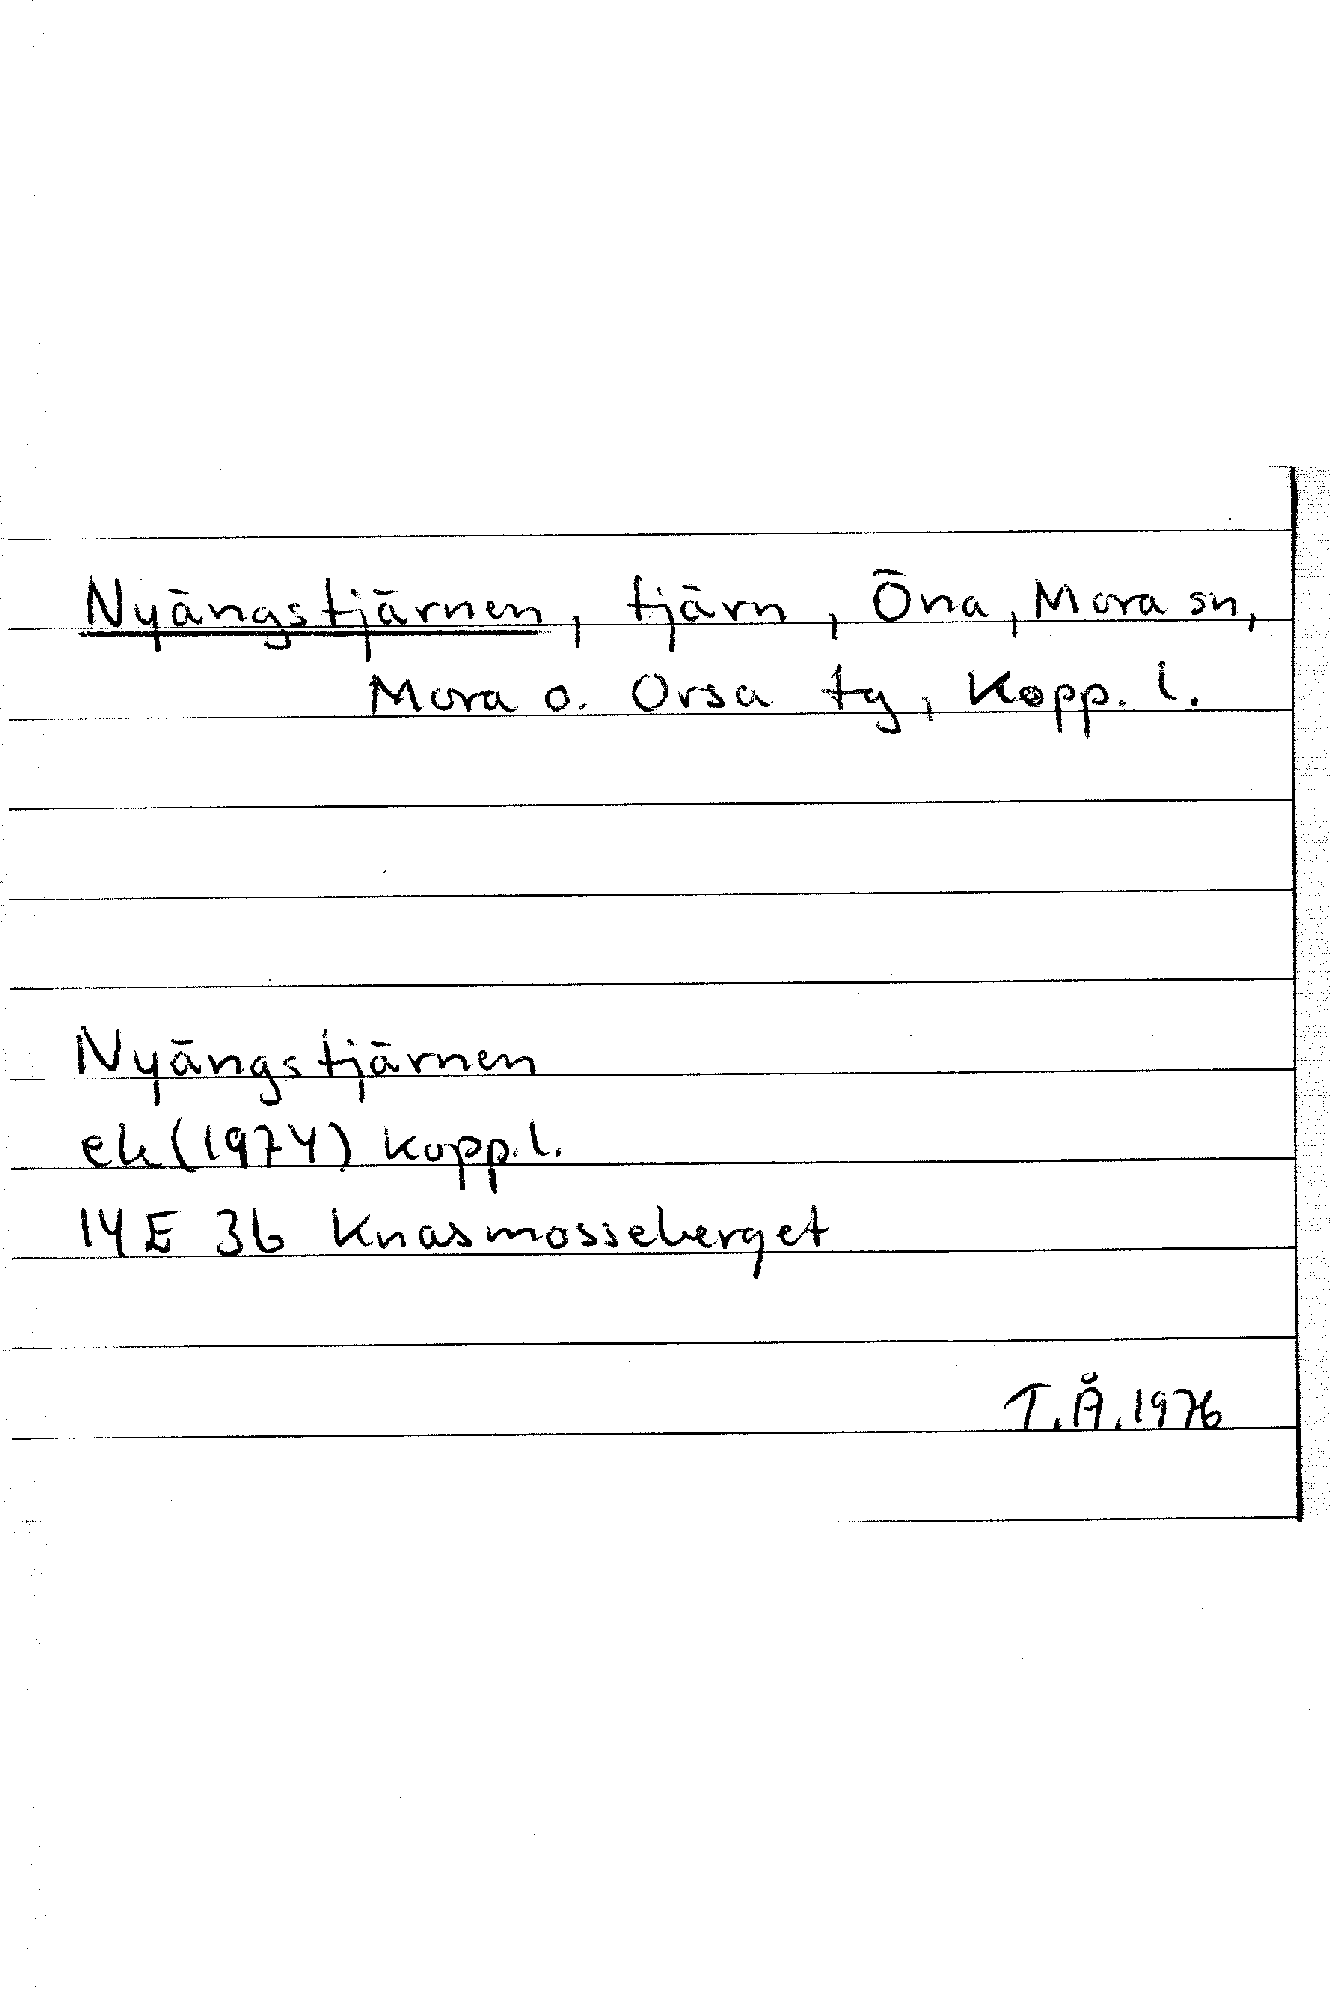 Nyängstjärnen, tjärn, Öna, Mora sn,
Mora o. Orsa tg, Kopp. l.
Nyängstjärnen
ek (1974) Kopp. l.
14E 3b Knasmosseberget
T.Å. 1976